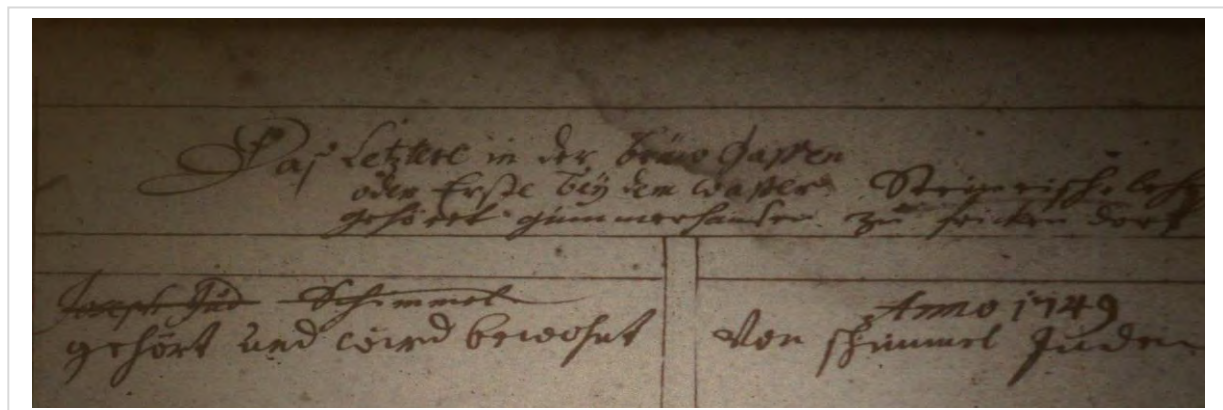 Das Letztere in der breue Gassen
oder Erste beÿ dem wasser Steinerische lehen
gehöret zu fricken dorf
Joseph Jüd Schimmel
gehört und wird bewohnt
Anno 1749
Von schimmel Juden